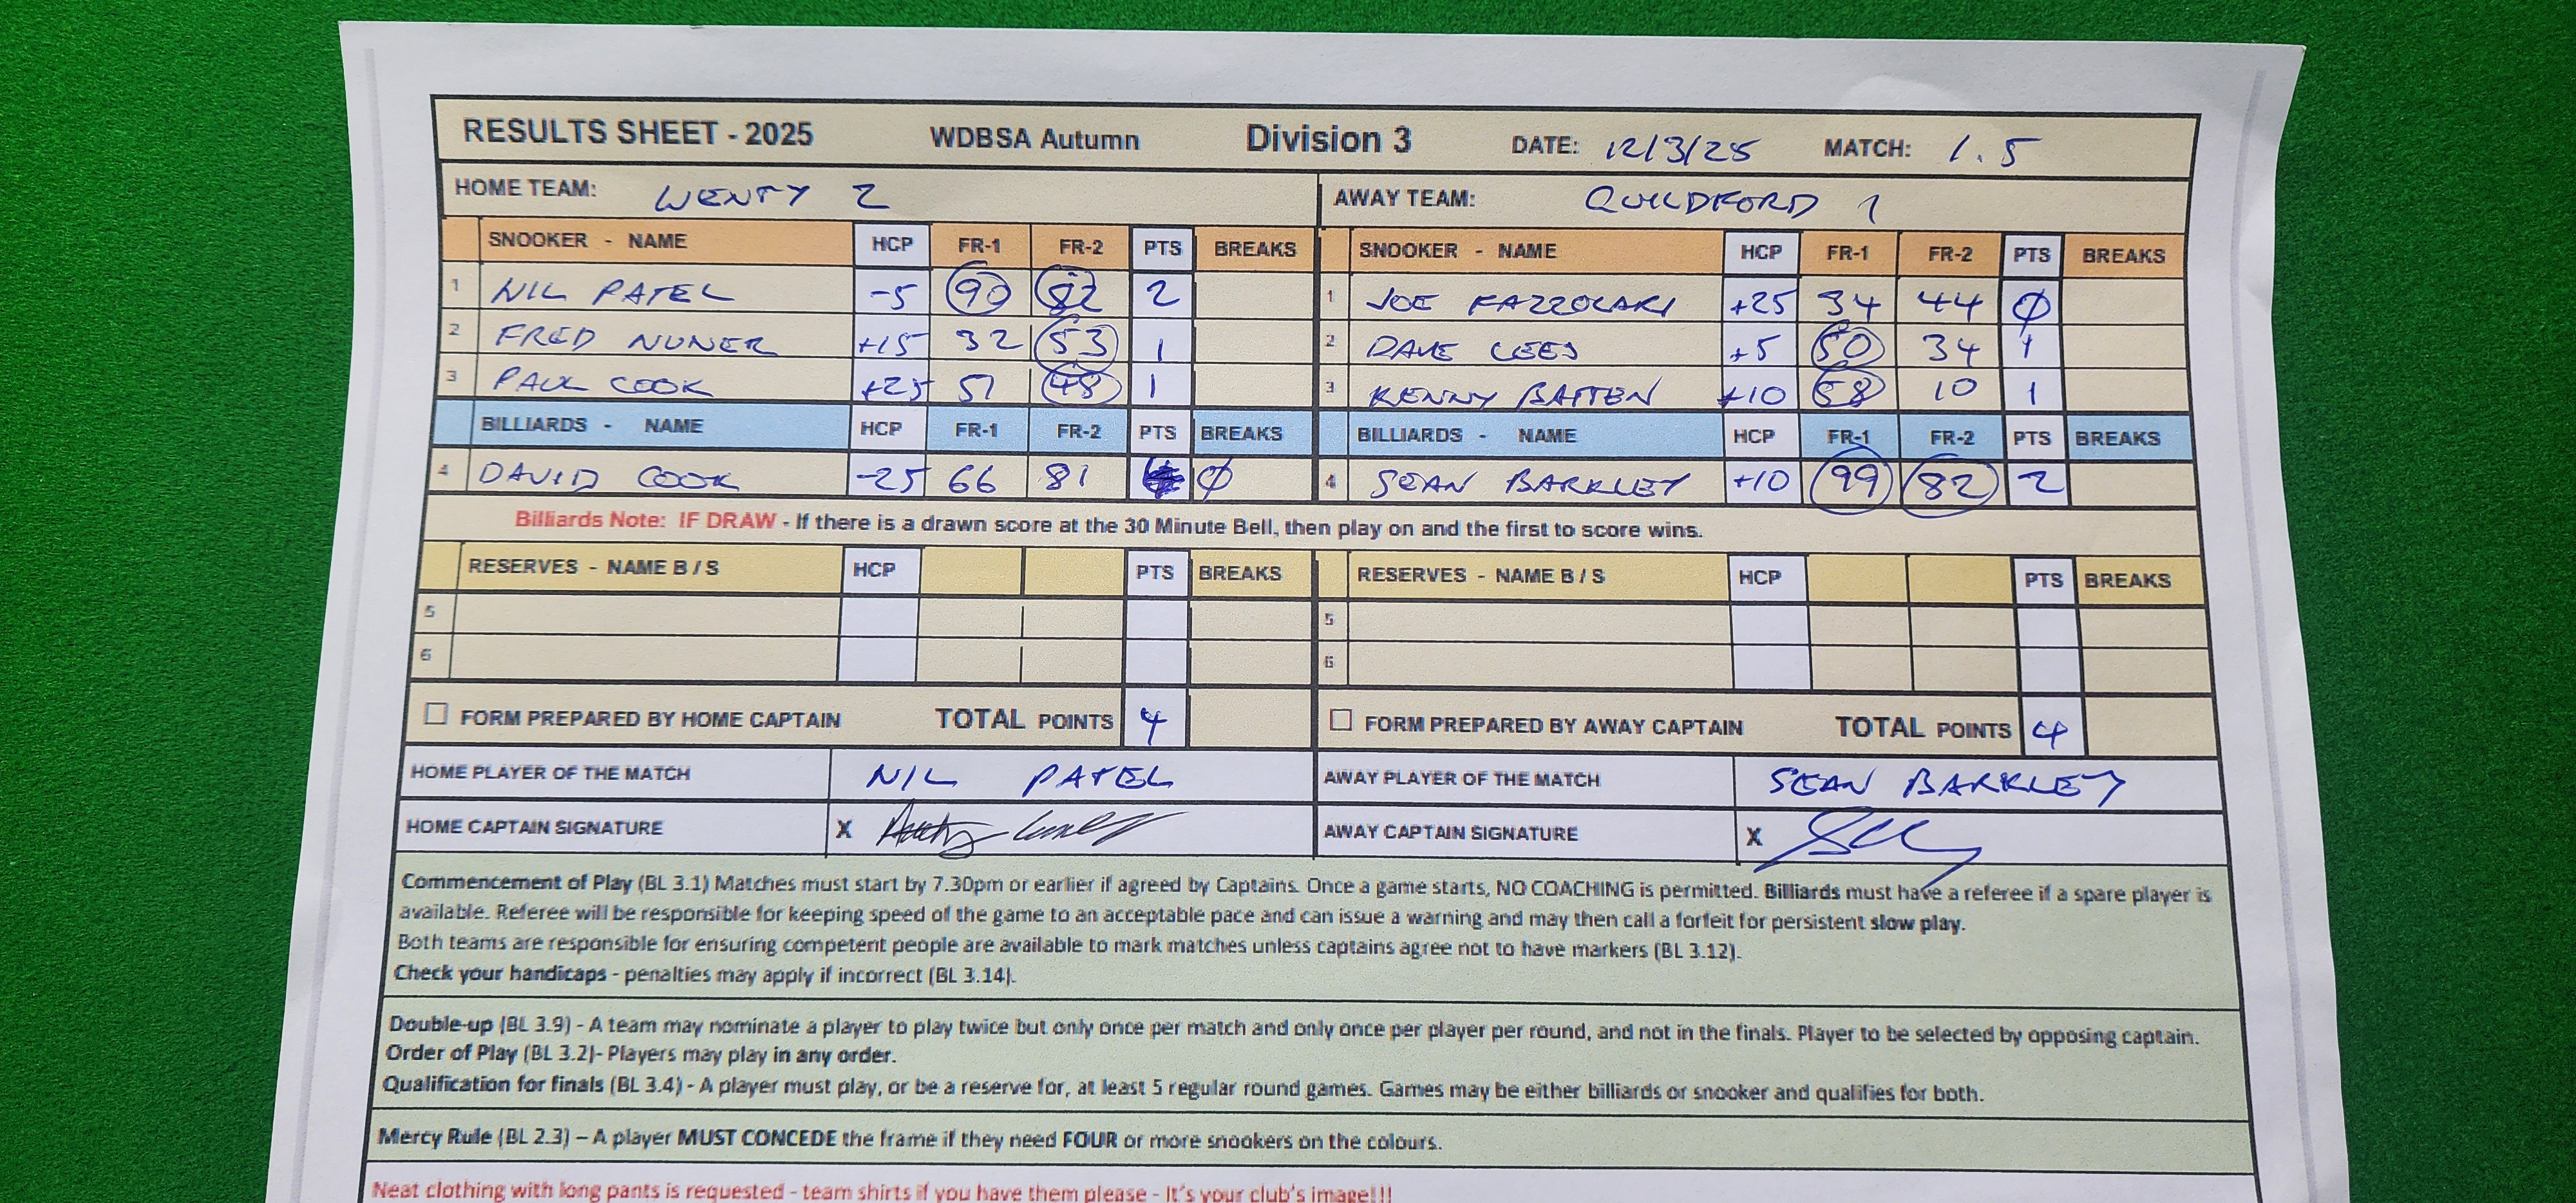 RESULTS SHEET - 2025 WDBSA Autumn Division 3 DATE: 12/3/25 MATCH: 1.5
HOME TEAM: WENTY 2 AWAY TEAM: QUILDFORD 1
SNOOKER - NAME HCP FR-1 FR-2 PTS BREAKS SNOOKER - NAME HCP FR-1 FR-2 PTS BREAKS
1 NIL PATEL -5 90 82 2 1 JOE FAZZOLARI +25 34 44 0
2 FRED NUNER +15 32 53 1 2 DAVE LEES +5 50 34 1
3 PAUL COOK +25 51 48 1 3 KENNY BATTEN +10 58 10 1
BILLIARDS - NAME HCP FR-1 FR-2 PTS BREAKS BILLIARDS - NAME HCP FR-1 FR-2 PTS BREAKS
4 DAVID COOK -25 66 81 0 4 SEAN BARKLEY +10 99 82 2
Billiards Note: IF DRAW - If there is a drawn score at the 30 Minute Bell, then play on and the first to score wins.
RESERVES - NAME B / S HCP PTS BREAKS RESERVES - NAME B / S HCP PTS BREAKS
5 5
6 6
FORM PREPARED BY HOME CAPTAIN TOTAL POINTS 4 FORM PREPARED BY AWAY CAPTAIN TOTAL POINTS 4
HOME PLAYER OF THE MATCH NIL PATEL AWAY PLAYER OF THE MATCH SEAN BARKLEY
HOME CAPTAIN SIGNATURE X AWAY CAPTAIN SIGNATURE X
Commencement of Play (BL 3.1) Matches must start by 7.30pm or earlier if agreed by Captains. Once a game starts, NO COACHING is permitted. Billiards must have a referee if a spare player is
available. Referee will be responsible for keeping speed of the game to an acceptable pace and can issue a warning and may then call a forfeit for persistent slow play.
Both teams are responsible for ensuring competent people are available to mark matches unless captains agree not to have markers (BL 3.12).
Check your handicaps - penalties may apply if incorrect (BL 3.14).
Double-up (BL 3.9) - A team may nominate a player to play twice but only once per match and only once per player per round, and not in the finals. Player to be selected by opposing captain.
Order of Play (BL 3.2)- Players may play in any order.
Qualification for finals (BL 3.4) - A player must play, or be a reserve for, at least 5 regular round games. Games may be either billiards or snooker and qualifies for both.
Mercy Rule (BL 2.3) – A player MUST CONCEDE the frame if they need FOUR or more snookers on the colours.
Neat clothing with long pants is requested - team shirts if you have them please - It's your club's image!!!